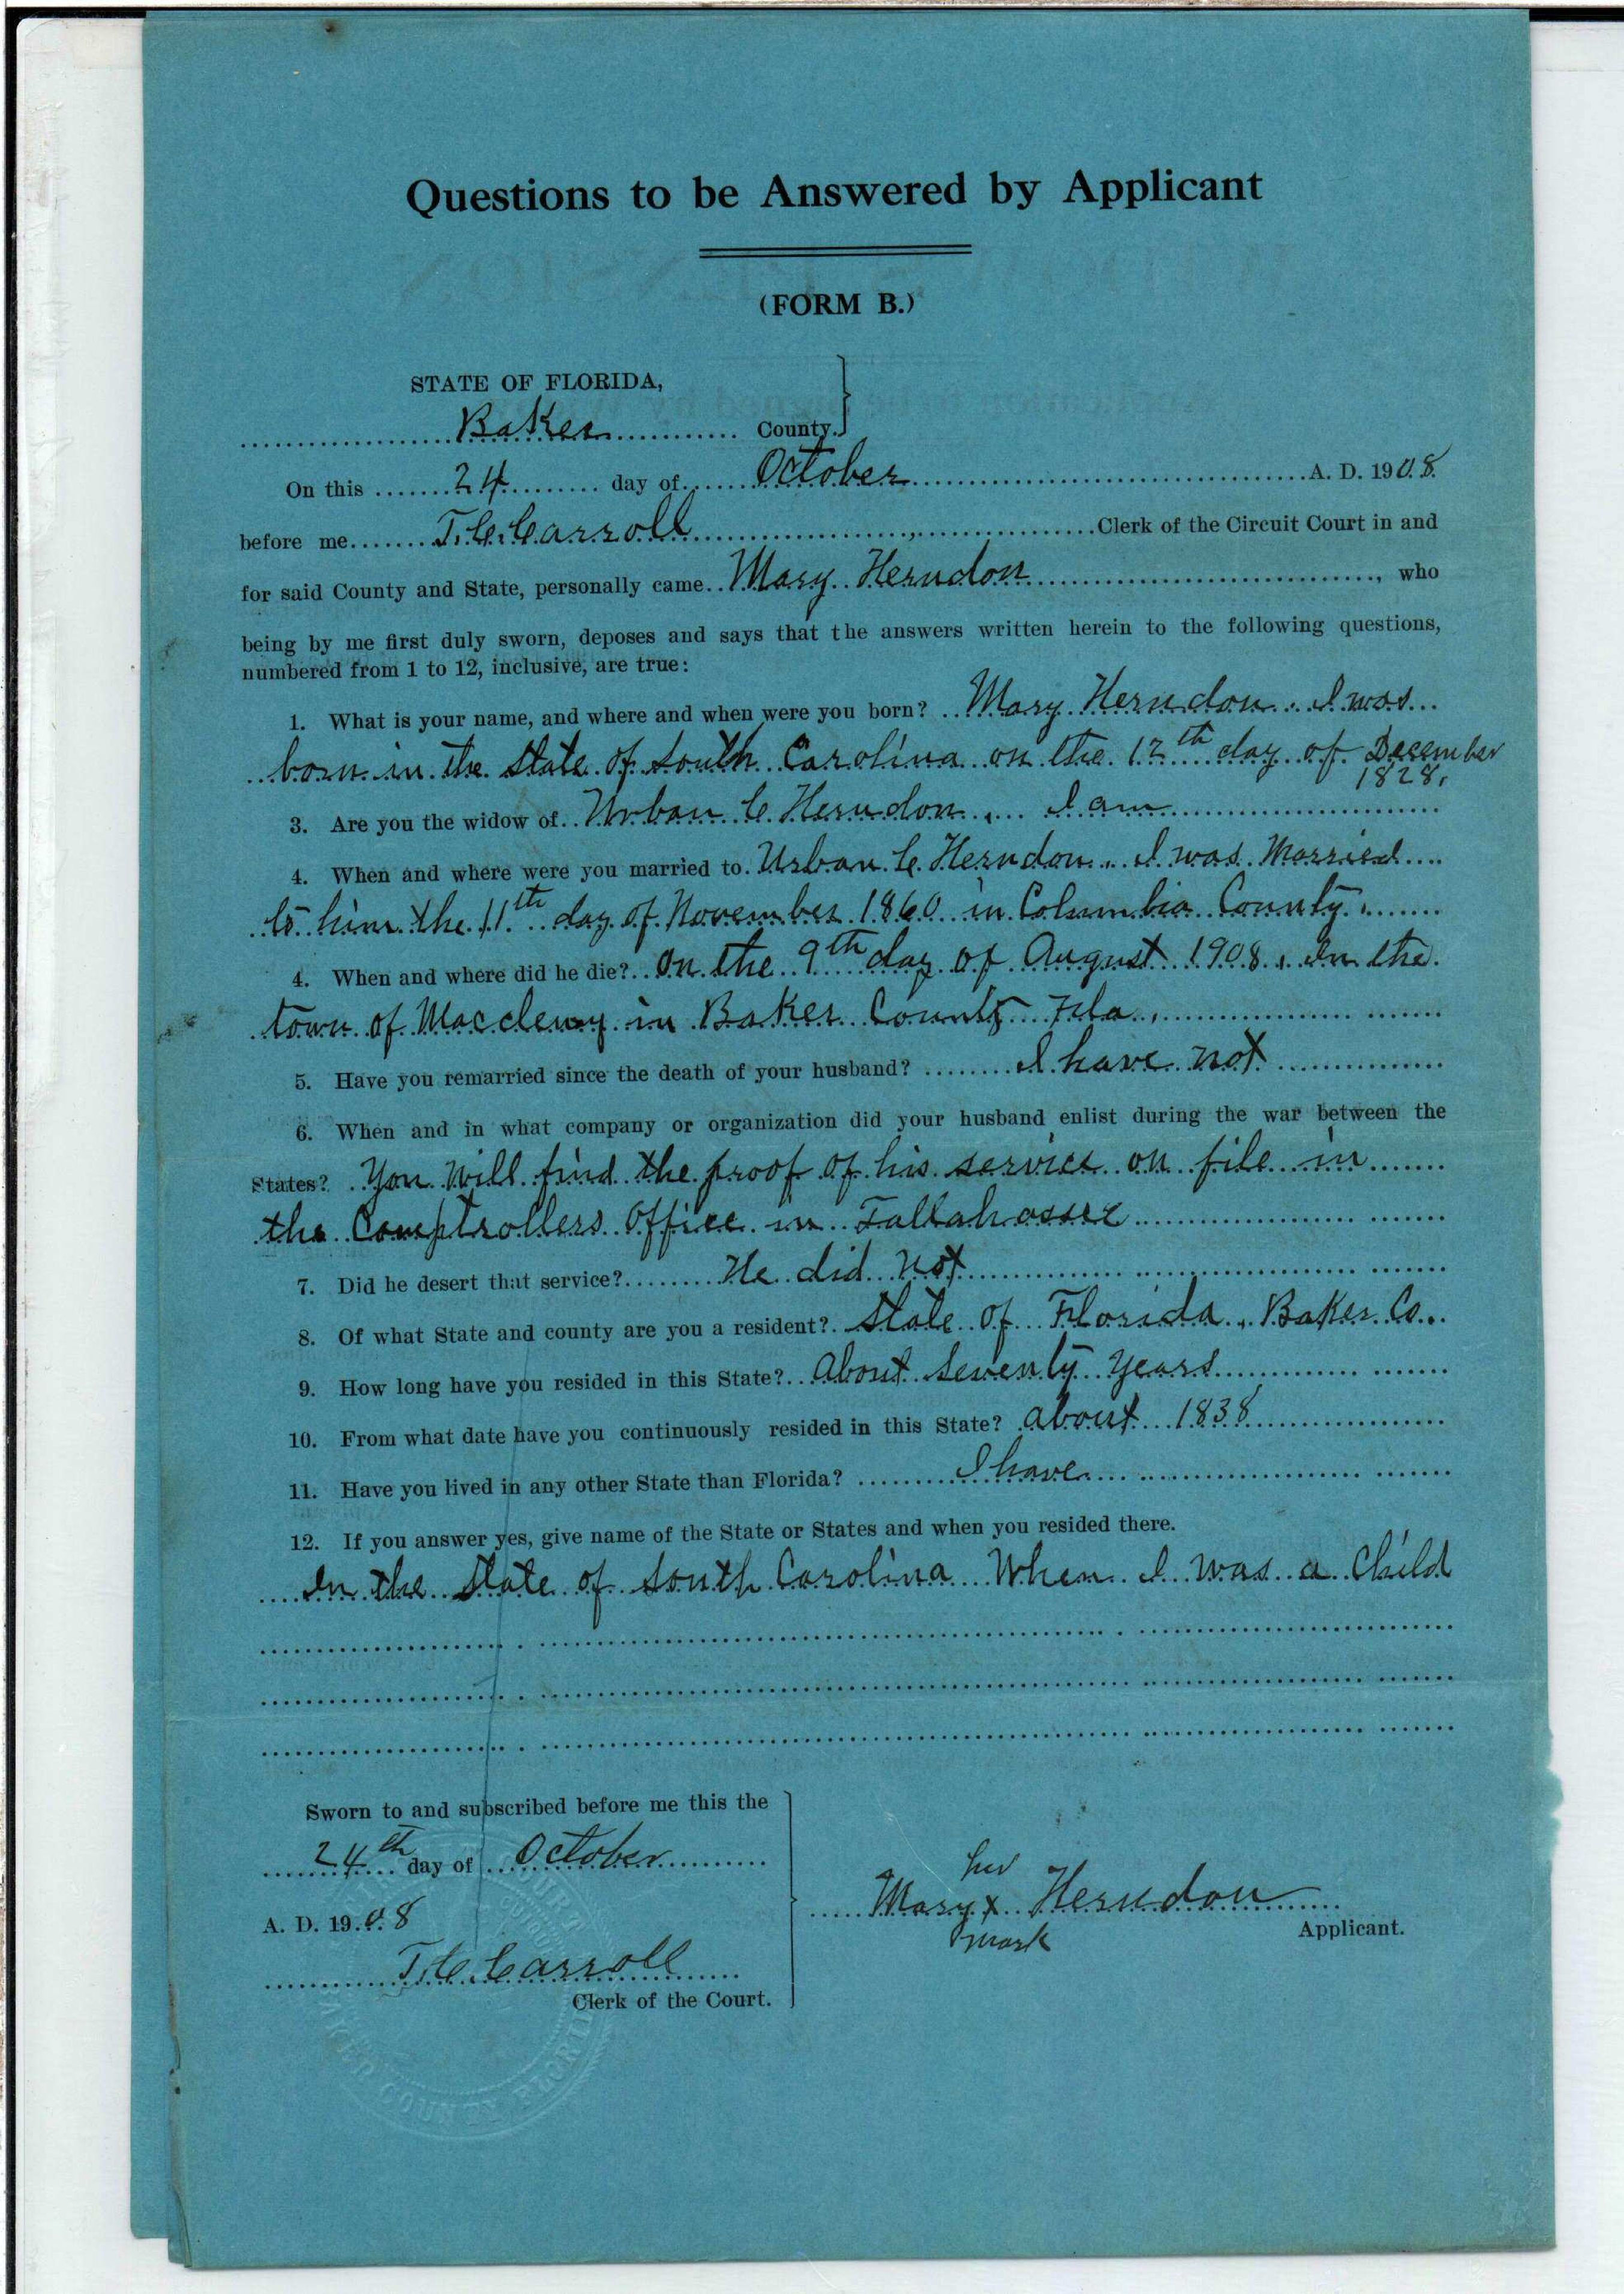 Questions to be Answered by Applicant
(FORM B.)
STATE OF FLORIDA,
Baker County.
On this 24 day of October A. D. 1908.
before me T. C. Carroll, Clerk of the Circuit Court in and
for said County and State, personally came Mary Herndon, who
being by me first duly sworn, deposes and says that the answers written herein to the following questions,
numbered from 1 to 12, inclusive, are true:
1. What is your name, and where and when were you born? Mary Herndon. I was
born in the State of South Carolina on the 12th day of December
1828.
3. Are you the widow of Urban C. Herndon, I am
4. When and where were you married to Urban C. Herndon. I was Married
to him the 11th day of November 1860 in Columbia County.
4. When and where did he die? On the 9th day of August 1908, In the
town of Macclenny in Baker County Fla.
5. Have you remarried since the death of your husband? I have not
6. When and in what company or organization did your husband enlist during the war between the
States? You will find the proof of his service on file in
the Comptrollers Office in Tallahassee
7. Did he desert that service? He did not
8. Of what State and county are you a resident? State of Florida, Baker Co.
9. How long have you resided in this State? About Seventy years
10. From what date have you continuously resided in this State? about 1838
11. Have you lived in any other State than Florida? I have
12. If you answer yes, give name of the State or States and when you resided there.
In the State of South Carolina When I was a Child
Sworn to and subscribed before me this the
24th day of October
A. D. 1908
T. C. Carroll
Clerk of the Court.
her
Mary x Herndon
mark
Applicant.
COURT
BAKER COUNTY FLORIDA